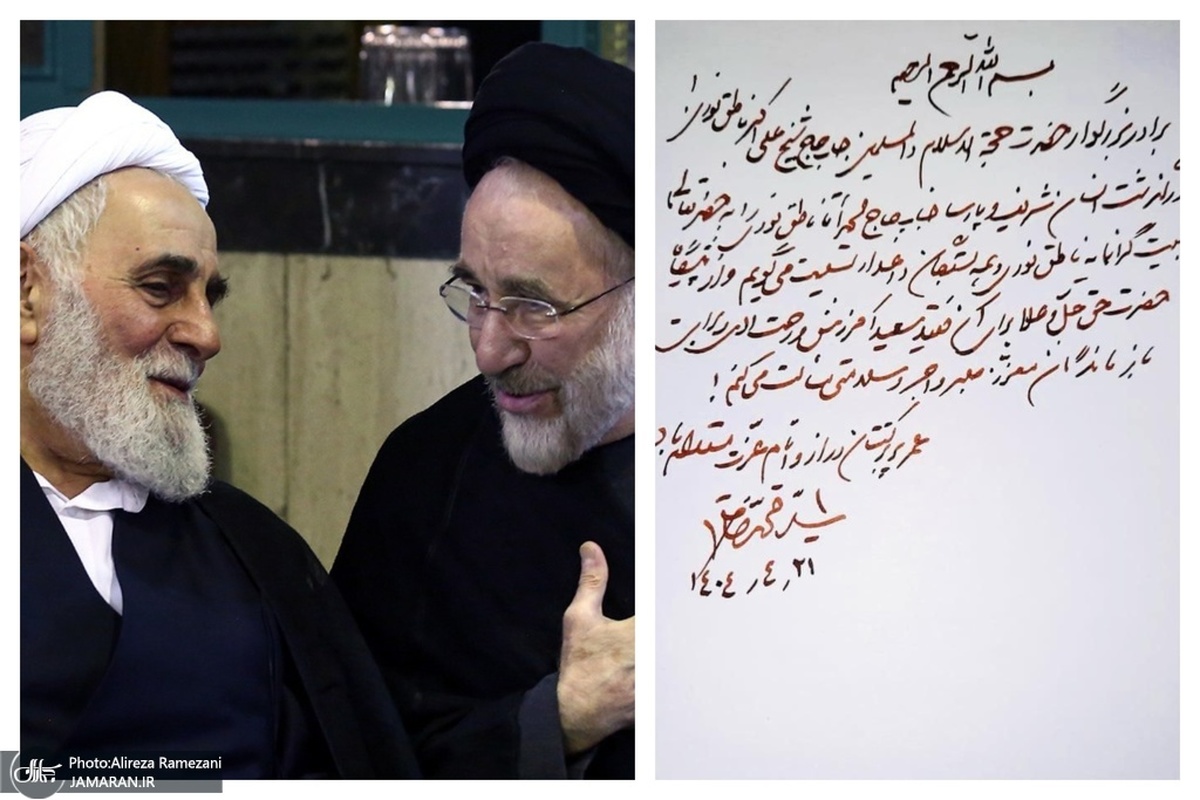 بسم الله الرحمن الرحیم
برادر بزرگوار حضرت حجة الاسلام والمسلمین جناب حاج شیخ علی اکبر ناطق نوری!
درگذشت انسان شریف و پارسا جناب حاج آقا ناطق نوری را به حضرتعالی
بیت گرانمایه ناطق نوری و همه بستگان داغدار تسلیت می‌گویم و از پیشگاه
حضرت حق جل و علا برای آن فقید سعید آمرزش و رحمت الهی و برای
بازماندگان معزز صبر و اجر و سلامتی مسألت می‌کنم!
عمر پربرکتتان دراز و ایام عزت مستدام باد
سید محمد خاتمی
۱۴۰۴٫۴٫۲۱
Photo:Alireza Ramezani
JAMARAN.IR
جماران